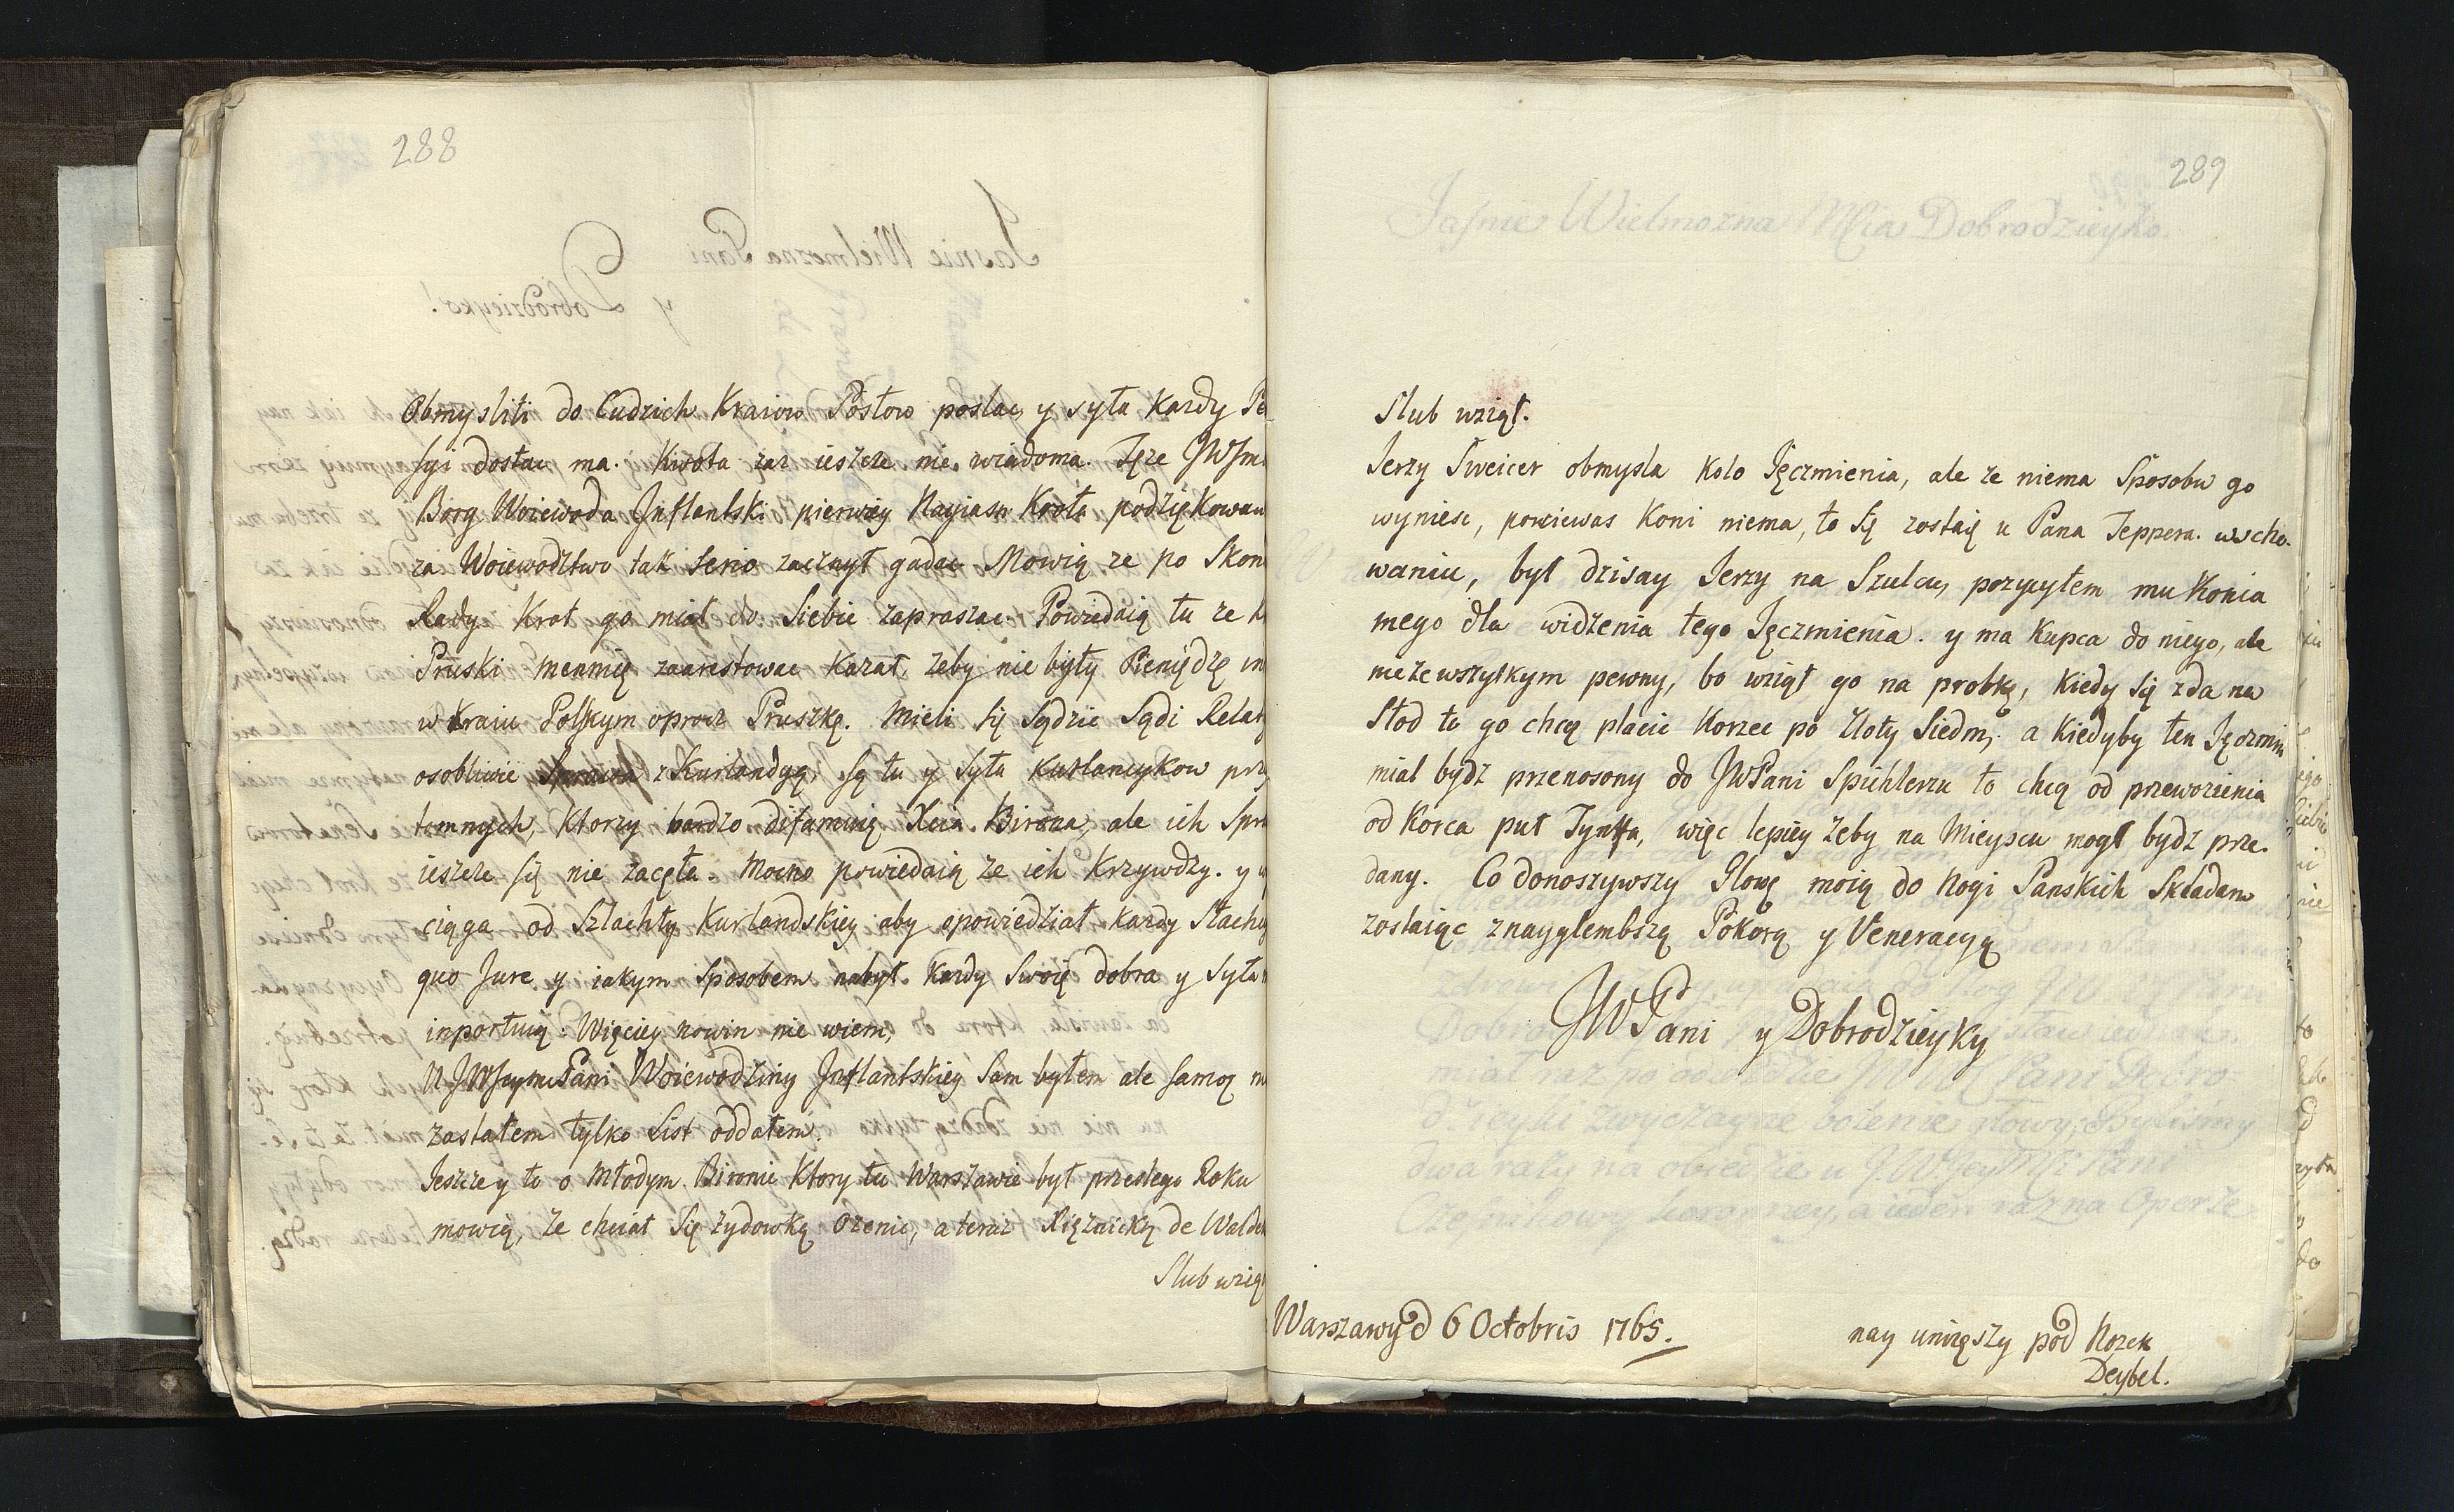 288
Obmyslili do Cudzich Kraiow Posłow poslac, y syła Kazdy Pe
syi dostac ma. Kwota zas ieszcze nie wiadoma. Tęze JWJm
Borg Woiewoda Inflantski pierwzy Nayiasn Krola podzięKowan
za Woiewodztwo tak serio zacznył gadac Mowią ze po Skon
Rady Krol go miał do Siebie zapraszac. Powiedaią tu ze
Pruski mennię zaarestowac Kazał, zeby nie były Pieniędzę in
w Kraiu Polskym oprocz Pruszkę. Mieli się Sędzie Sądi Relac
osobliwie z Kurlandyą, są tu y syła Kurlancykow prz
tomnych, Ktorzy bardzo difamuią Xcia Birona, ale ich Spra
ieszcze się nie zacęła. Mocno powiedaią ze ich Krzywdzy. y
ciąga od Szlachty Kurlandskiey aby opowiedział kazdy Slachc
quo Jure y iakym Sposobem nabył Kazdy Swoię dobra y syła
inportuią. Więciey nowin nie wiem,
U JWJeymci Pani Woiewodziny Inflantskiey Sam byłem ale samą ni
zastałem tylko List oddałem.
Jeszczey to o Młodym Bironie Ktory tu Warszawie był przeslego Roku
mowią, ze chciał Się zydowką Ozenic, a teraz Xięznicką de Walde
Slub wziął
289
Slub wziął.
Jerzy Sweicer obmysla Kolo Jęczmienia, ale ze niema Sposobu go
wyniesc, poniewas Koni niema, to Są zostaię u Pana Teppera. w scho-
waniu, był dzisay Jerzy na Szulcu, pozycyłem mu Konia
mego dla widzenia tego Jęczmienia. y ma Kupca do niego, ale
nieze wszytkym pewny, bo wziął go na probkę, Kiedy Są zda na
Słod to go chcą placic Korzec po Zloty Siedm, a Kiedyby ten Jęczmin
mial bydz przenosony do JWPani Spichlerzu to chcą od przewozienia
od Korca puł Tynffa, więc lepiey zeby na Mieyscu mogł bydz prze-
dany. Co donoszywszy Głowę moią do Nogi Panskich Składam
zostaiąc znayglembszą Pokorą y Veneracyą
JWPani y Dobrodzieyky
Warszawy d 6 Octobris 1765.
nay unizęszy pod Nozek
Deybel.